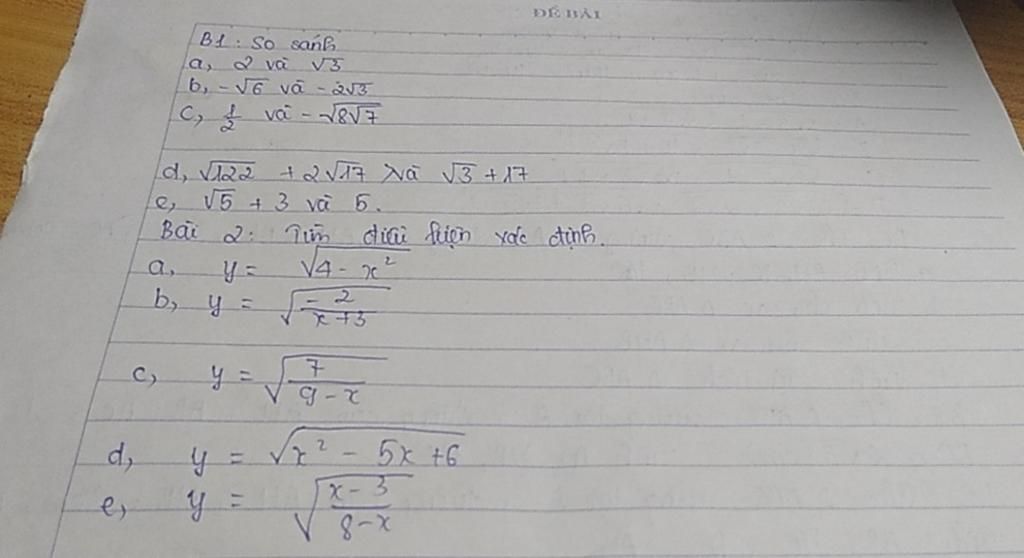 ĐỀ BÀI
B1: So sánh
a, 2 và √3
b, -√6 và -2√3
c, 1/2 và -√8√7
d, √122 + 2√17 và √3 + 17
e, √5 + 3 và 5.
Bài 2: Tìm điều kiện xác định.
a, y = √(4 - x²)
b, y = √(-2/(x+3))
c, y = √(7/(9-x))
d, y = √(x² - 5x + 6)
e, y = √((x-3)/(8-x))